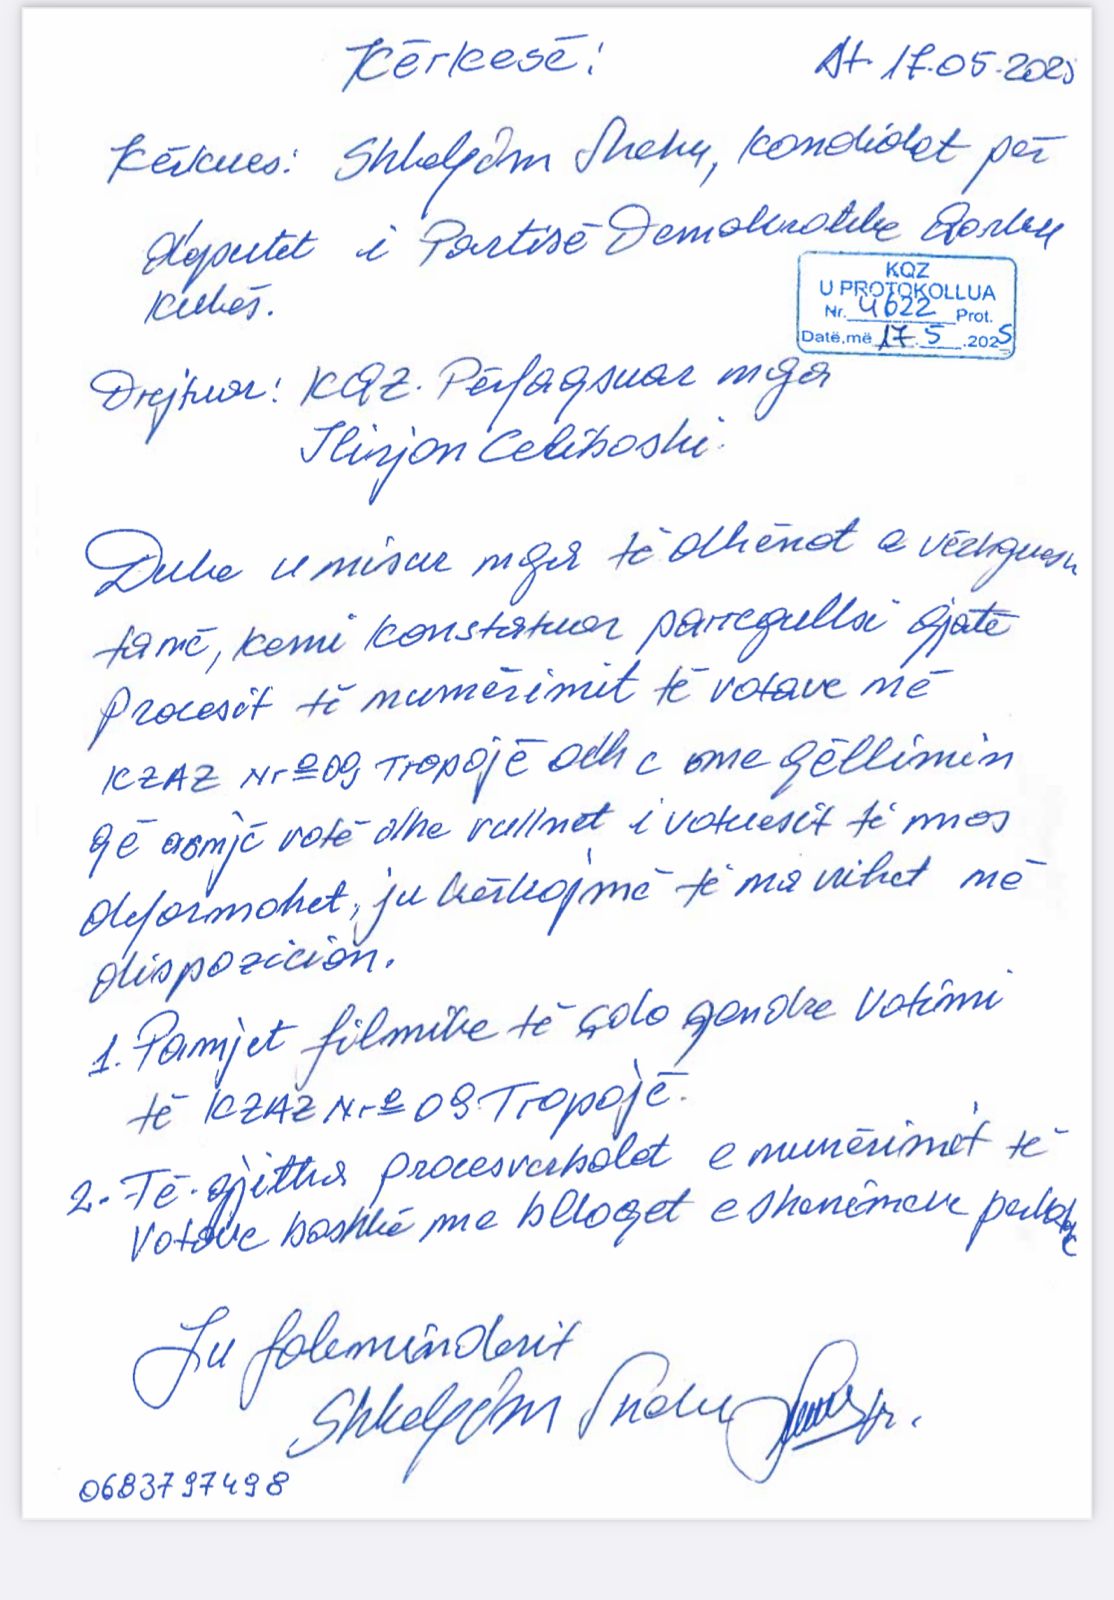 Kërkesë!
Dt. 17.05.2025
Kërkues: Shkelqim Shehu, kandidat për
deputet i Partisë Demokratike Qarku
Kukës.
KQZ
U PROTOKOLLUA
Nr. 4622 Prot.
Datë,më 17.5.2025
Drejtuar: KQZ. Përfaqsuar nga
Ilirjan Celibashi.
Duke u nisur nga të dhënat e vëzhguesve
tanë, kemi konstatuar parregullsi gjatë
procesit të numërimit të votave në
KZAZ Nrº 09, Tropojë dhe me qëllimin
që asnjë votë dhe vullnet i votuesit të mos
deformohet, ju kërkojmë të na vihet në
dispozicion.
1. Pamjet filmike të çdo qendre votimi
të KZAZ Nrº 09 Tropojë.
2. Të gjitha procesverbalet e numërimit të
votave bashkë me blloqet e shënimeve
Ju faleminderit
Shkelqim Shehu
0683797498